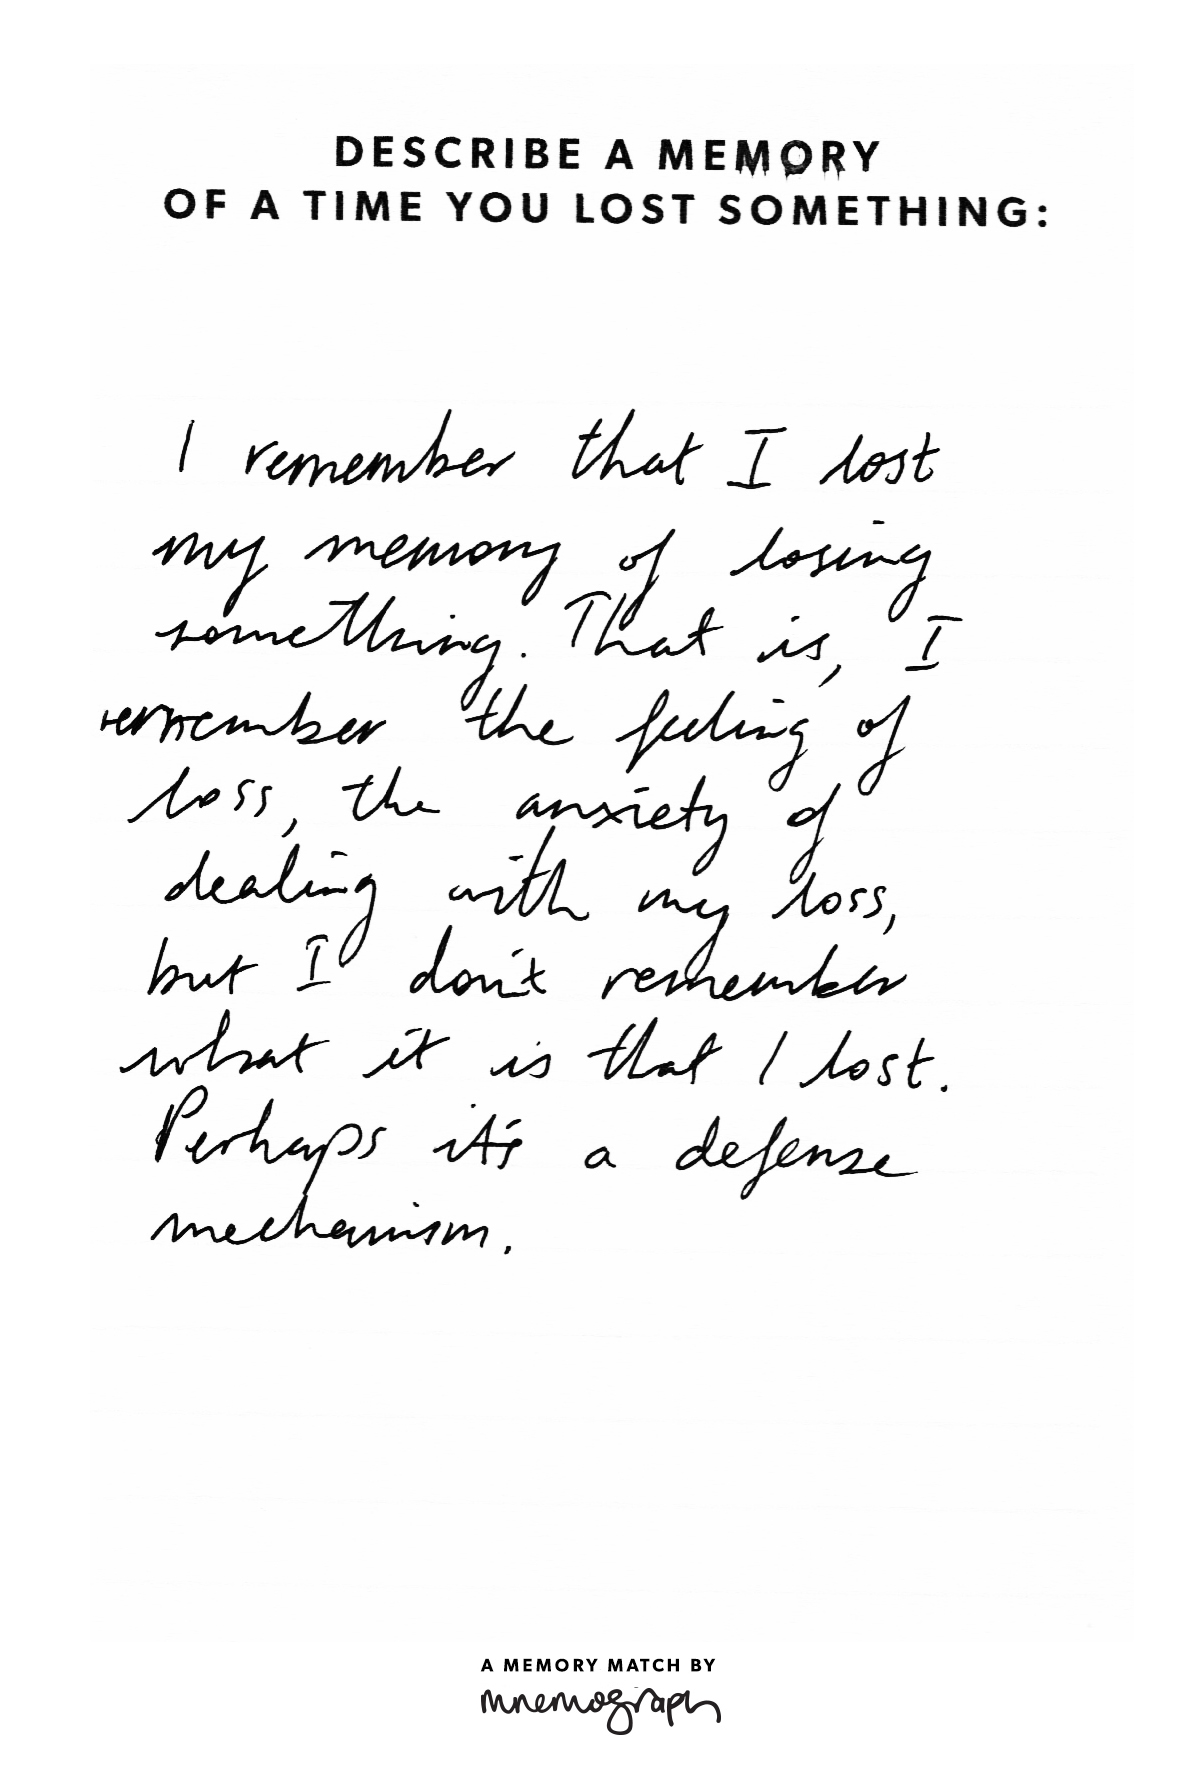 DESCRIBE A MEMORY
OF A TIME YOU LOST SOMETHING:
I remember that I lost
my memory of losing
something. That is, I
remember the feeling of
loss, the anxiety of
dealing with my loss,
but I don't remember
what it is that I lost.
Perhaps it's a defense
mechanism.
A MEMORY MATCH BY
mnemograph